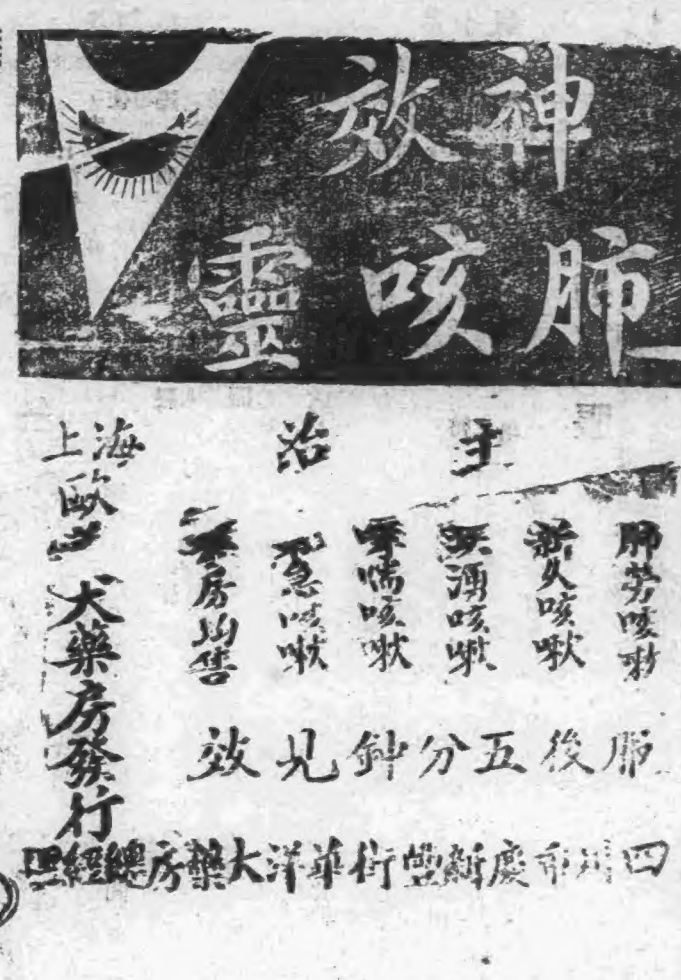 神效
肺咳靈
主治
肺勞咳嗽
新久咳嗽
痰湧咳嗽
哮喘咳嗽
急咳嗽
房均售
服後五分鐘見效
上海
歐
大藥房發行
四川慶新豐街華洋大藥房總經理